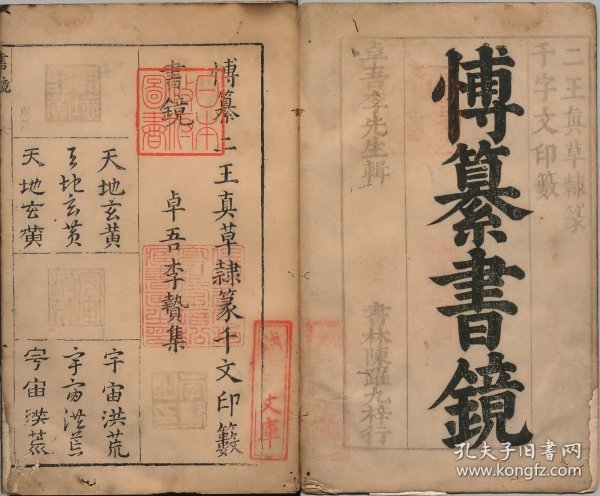 二王真草隸篆
千字文印籔
愽纂書鏡
卓吾李先生輯
書林陳
九梓行
愽纂二王真草隷篆千文印籔
書鏡
卓吾李贄集
日本
政府
圖書
文庫
天地玄黃
天地玄黄
天地玄黄
宇宙洪荒
宇宙洪荒
宇宙洪荒
書鏡
孔夫子旧书网
www.kongfz.com